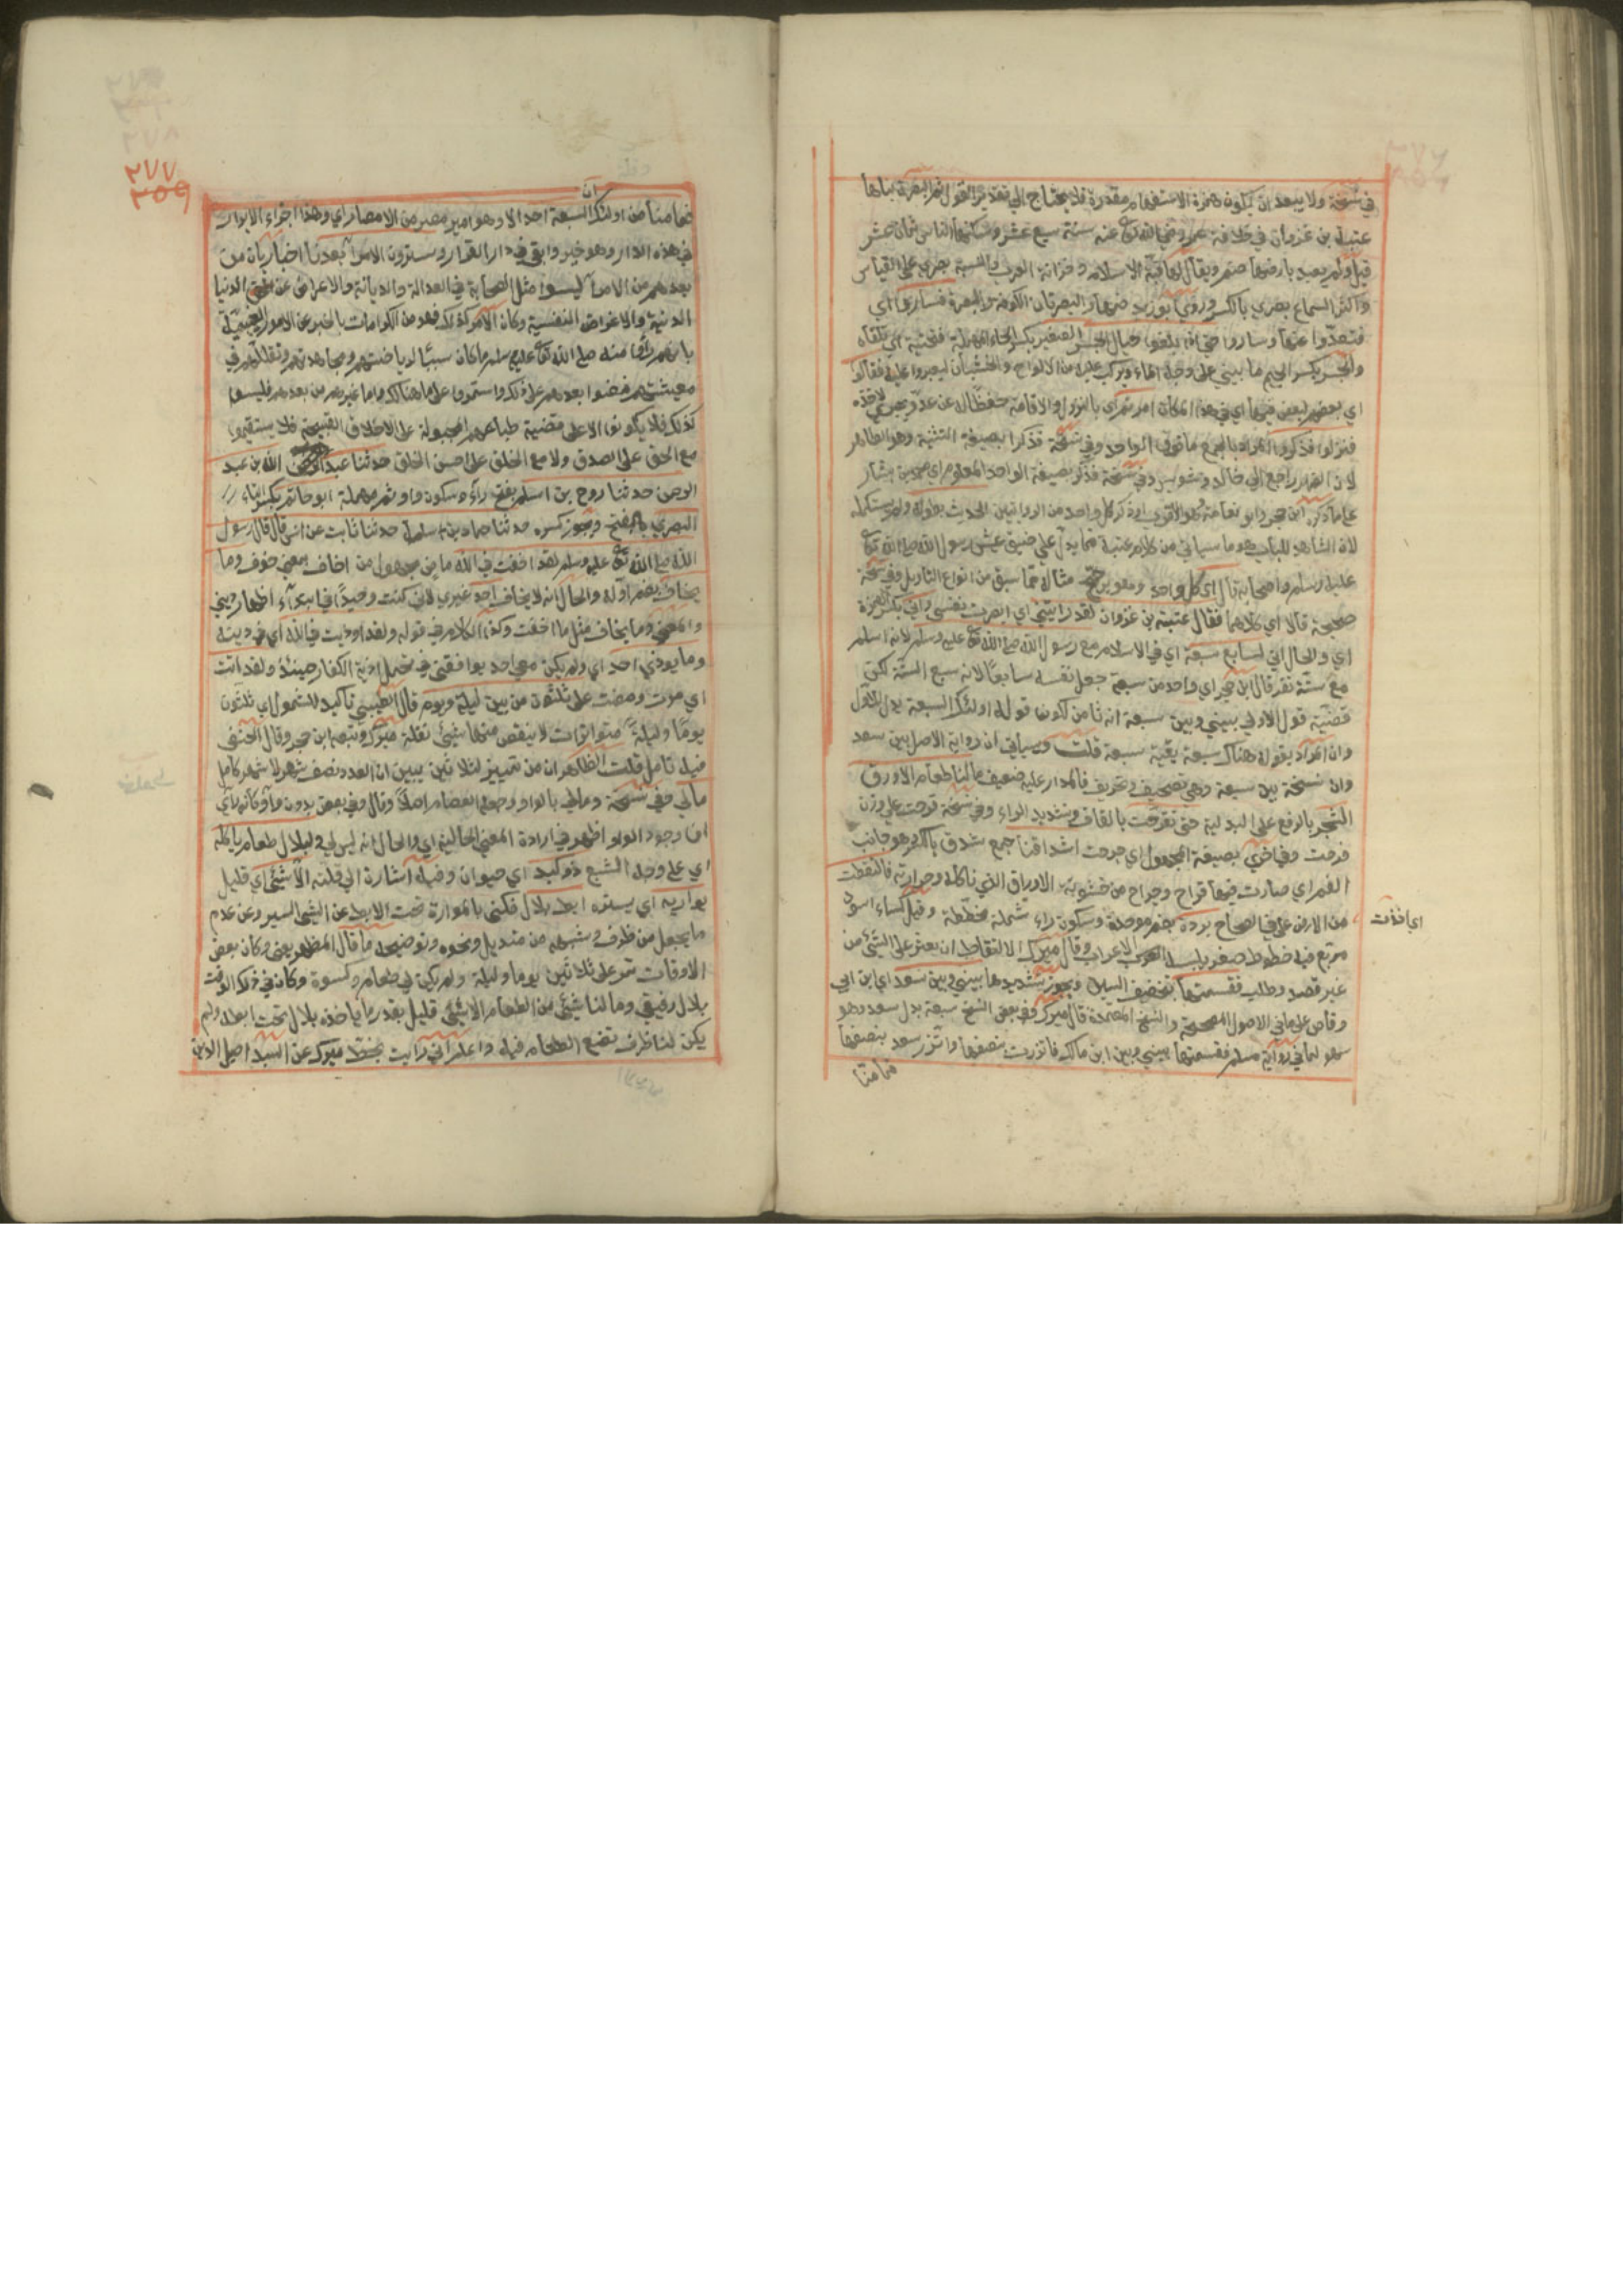 في نسخة ولا يبعد ان يكون همزة الاستفهام مقدرة فلا يحتاج الى تقدير القول ثم البصرة بناها
عتبة بن غزوان في خلافة عمر رضي الله تع عنه سنة سبع عشر وسكنها الناس ثمان عشر
قيل ولم يعبد بارضها صنم ويقال لها قبة الاسلام وخزانة العرب والنسبة بصري على القياس
واكثر السماع بصري بالكسر وروي ابو زيد ضمها والبصرتان الكوفة والبصرة فساروا اي
فتعدوا عنها وساروا حتى اذا بلغوا حيال الجسر الصغير بكسر الحاء المهملة فتحتية اي تلقاه
والجسر بكسر الجيم ما يبنى على وجه الماء ويركب عليه من الالواح والخشبان ليعبروا عليه فقالوا
اي بعضهم لبعض فيها اي في هذا المكان امرتم اي بالنزول والاقامة حفظا له عن عدو يجيء لاخذه
فنزلوا فذكروا المراد بالجمع ما فوق الواحد وفي نسخة فذكرا بصيغة التثنية وهو الظاهر
لان الضمير راجع الى خالد وشويس وفي نسخة فذكر بصيغة الواحد المعلوم اي محمد بن بشار
على ما ذكره ابن حجر وابو نعامة وهو الاقرب او ذكر كل واحد من الراويين الحديث بطوله ولم يستكمله
لان الشاهد للباب هو ما سياتي من كلام عتبة مما يدل على ضيق عيش رسول الله صلى الله تع
عليه وسلم واصحابه قال اي كل واحد مثاله مما سبق من انواع التاويل وفي نسخة
صحيحة قالا اي كلاهما فقال عتبة بن غزوان لقد رايتني اي ابصرت نفسي واني بكسر الهمزة
اي والحال اني لسابع سبعة اي في الاسلام مع رسول الله صلى الله تع عليه وسلم لانه اسلم
مع ستة نفر قال ابن حجر اي واحد من سبعة جعل نفسه سابعا لانه سبع الستة لكن
قضية قول الاولى بيني وبين سبعة انه ثامن لكون قوله اولئك السبعة بدل الاول
وان المراد بقوله هناك سبعة بقية سبعة قلت وسياتي ان رواية الاصل بين سعد
وان نسخة بين سبعة وهي تصحيف وتحريف فالمدار عليه ضعيف مالنا طعام الا ورق
الشجر بالرفع على البدلية حتى تقرحت بالقاف وتشديد الراء وفي نسخة قرحت على وزن
فرحت وفي اخرى بصيغة المجهول اي جرحت اشداقنا جمع شدق بالكسر وهو جانب
الفم اي صارت فيها قراح وجراح من خشونة الاوراق الذي ناكله وحرارته فالتقطت
اي اخذت
من الارض على في الصحاح بردة بضم موحدة وسكون راء شملة مخططة وقيل كساء اسود
مربع فيه خطوط صفر يلبسه الاعراب وقال ميرك الالتقاط ان يعثر على الشيء من
غير قصد وطلب فقسمتها بتخفيف السين ويجوز تشديدها بيني وبين سعد اي ابن ابي
وقاص على ما في الاصول المصححة والنسخ المعتمدة قال ميرك وفي بعض النسخ سبعة بدل سعد وهو
سهو لما في رواية مسلم فقسمتها بيني وبين ابن مالك فاتزرت بنصفها واتزر سعد بنصفها
فما منا
٢٧٧
٣٥٩
فما منا من اولئك السبعة احد الا وهو امير مصر من الامصار اي وهذا اجزاء الابرار
في هذه الدار وهو خير وابقى في دار القرار وستجربون الامراء بعدنا اخبار بان من
بعدهم من الامراء ليسوا مثل الصحابة في العدالة والديانة والاعراض عن الدنيا
الدنية والاغراض النفسية وكان الامر كذلك فهو من الكرامات بالخبر عن الامور الغيبية
بانهم راوا منه صلى الله تع عليه وسلم ما كان سببا لرياضتهم ومجاهدتهم وتقللهم في
معيشتهم فمضوا بعده على ذلك واستمروا على ما هنالك واما غيرهم من بعدهم فليسوا
كذلك فلا يكونون الا على قضية طباعهم المجبولة على الاخلاق القبيحة فلا يستقيموا
مع الحق على الصدق ولا مع الخلق على حسن الخلق حدثنا عبد الله بن عبد
الرحمن حدثنا روح بن اسلم بفتح راء وسكون واو ثم مهملة ابو حاتم بكسر التاء
البصري بالفتح ويجوز كسره حدثنا حماد بن سلمة حدثنا ثابت عن انس قال قال رسول
الله صلى الله تع عليه وسلم لقد اخفت في الله ماض مجهول من اخاف بمعنى خوف وما
يخاف بضم اوله والحال انه لا يخاف احد غيري لاني كنت وحيدا في ابتداء اظهار ديني
والمعنى وما يخاف مثل ما اخفت وكذا الكلام في قوله ولقد اوذيت في الله اي في دينه
وما يوذي احد اي ولم يكن معي احد يوافقني في تحمل اذية الكفار حينئذ ولقد اتت
اي مرت ومضت علي ثلثون من بين ليلة ويوم قال الطيبي تاكيد للشمول اي ثلثون
يوما وليلة متواترات لا ينقص منها شيئ نقله ميرك وتبعه ابن حجر وقال الحنفي
فيه تامل قلت الظاهر ان من تمييز لثلاثين يبين ان العدد نصف شهر لا شهر كامل
مالي وفي نسخة ومالي بالواو وجعله العصام اصلا وقال وفي بعض بدون واو وكانه راى
ان وجود الواو اظهر في ارادة المعنى الحالية اي والحال انه ليس لي ولبلال طعام ياكله
اي على وجه الشبع ذو كبد اي حيوان وفيه اشارة الى قلته الا شيئ اي قليل
يواريه اي يستره ابط بلال فكنى بالموارة تحت الابط عن الشيء اليسير وعن عدم
ما يجعل من ظرف وشبهه من منديل ونحوه وتوضيحه ما قال المظهر يعني وكان بعض
الاوقات تمر على ثلاثين يوما وليلة ولم يكن لي طعام وكسوة وكان في ذلك الوقت
بلال رفيقي وما لنا شيئ من الطعام الا شيئ قليل بقدر ما ياخذه بلال تحت ابطه ولم
يكن لنا ظرف نضع الطعام فيه واعلم اني رايت بخط ميرك عن السيد اصيل الدين